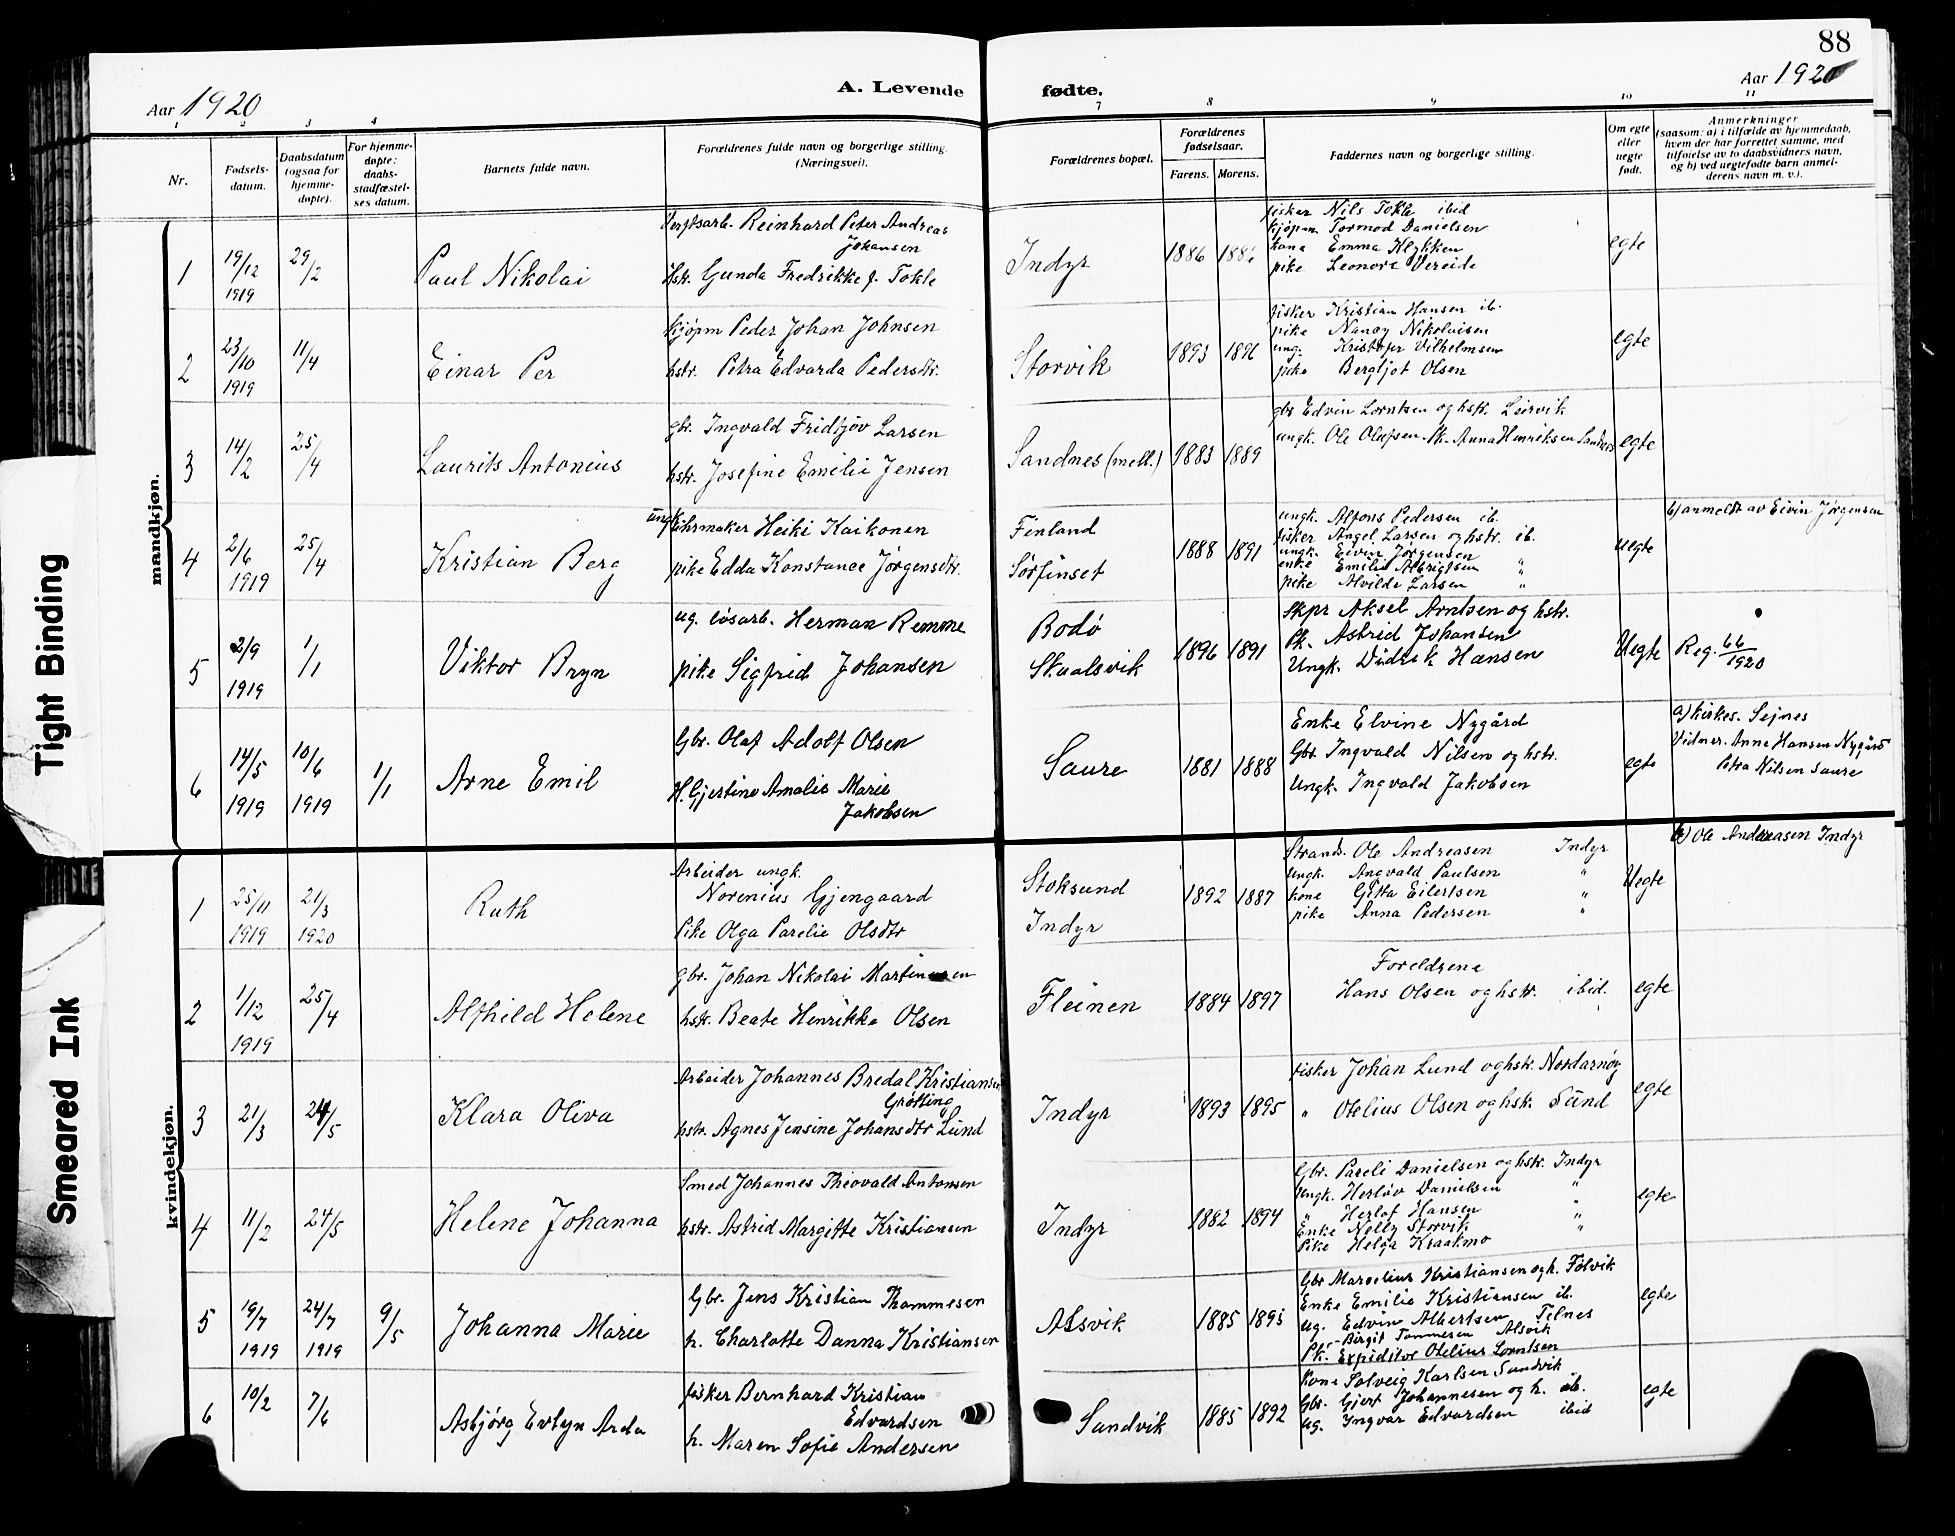 88
Aar 1920
A. Levende
fødte.
Aar 1920
1 2 3 4 7 8 9 10 11
Nr.
Fødsels-
datum.
Daabsdatum
(ogsaa for
hjemme-
døpte).
For hjemme-
døpte:
daabs-
stadfæstel-
ses datum.
Barnets fulde navn.
Forældrenes fulde navn og borgerlige stilling.
(Næringsvei).
Forældrenes bopæl.
Forældrenes
fødselsaar.
Farens. Morens.
Faddernes navn og borgerlige stilling.
Om egte
eller
uegte
født.
Anmerkninger
(saasom: a) i tilfælde av hjemmedaab,
hvem der har forrettet samme, med
tilføielse av to daabsvidners navn,
og b) ved uegtefødte barn anmel-
derens navn m. v.).
mandkjøn.
1
19/12
1919
29/2
Paul Nikolai
Reinhard Peter Andreas
Johansen
Hstr. Gunda Fredrikke f. Tokle
Indyr
1886
fisker Nils Tokle ibid
kjøpm Tormod Danielsen
kona Emma Klykken
pike Leonore Vereide
egte
2
23/10
1919
11/4
Einar Per
kjøpm Peder Johan Johnsen
hstr. Petra Edvarda Pedersdtr.
Storvik
1893 1896
fisker Kristian Hansen ib.
pike Nanay Nikolaisen
ung. Kristofer Vilhelmsen
pike Bergljot Olsen
egte
3
14/2
25/4
Laurits Antonius
gbr. Ingvald Fridtjov Larsen
hstr. Josefine Emilie Jensen
Sandnes (mell.)
1883 1889
gbr Edvin Lorntsen og hstr. Leirvik
ungk. Ole Olufsen Pk. Anna Henriksen Sandnes
egte
4
2/6
1919
25/4
Kristian Berg
ungk. uhrmaker Heiki Kaikonen
pike Edda Konstance Jørgensdtr.
Finland
Sørfinset
1888 1891
ungk. Alfons Pedersen ib.
fisker Angel Larsen og hstr. ib.
ungk. Eivin Jørgensen
enke Emilie Albrigtsen "
pike Alvilde Larsen "
uegte
b) anmeldt av Eivin Jørgensen
5
2/9
1919
1/1
Viktor Bryn
ug. løsarb. Herman Remme
pike Sigfrid Johansen
Bodø
Skaalsvik
1896 1891
Skpr Aksel Arntsen og hstr.
Pk. Astrid Johansen
Ungk. Didrik Hansen
Uegte
Reg. 66/1920
6
14/5
1919
10/6
1919
1/1
Arne Emil
Gbr. Olaf Adolf Olsen
H. Gjertine Amalie Marie
Jakobsen
Saure
1881 1888
Enke Elvine Nygård
Gbr. Ingvald Nilsen og hstr.
Ungk. Ingvald Jakobsen
egte
a) kirkes. Sejnes
Vidner. Anne Hansen Nygård
Petra Nilsen Saure
kvindekjøn.
1
25/11
1919
21/3
1920
Ruth
Arbeider ungk.
Norenius Gjengaard
Pike Olga Parelie Olsdtr
Stoksund
Indyr
1892 1887
Strands. Ole Andreasen Indyr
Ungk. Angvald Paulsen "
kone Gitta Eilertsen "
pike Anna Pedersen "
Uegte
b) Ole Andreasen Indyr
2
1/12
1919
25/4
Alfhild Helene
gbr. Johan Nikolai Martinussen
hstr. Beate Henrikke Olsen
Fleinen
1884 1897
Foreldrene
Hans Olsen og hstr. ibid.
egte
3
21/3
24/5
Klara Oliva
Arbeider Johannes Bredal Kristiansen
Grøtting
hstr. Agnes Jensine Johansdtr Lund
Indyr
1893 1895
fisker Johan Lund og hstr. Nordarnøy
" Otelius Olsen og hsk. Sund
egte
4
11/2
24/5
Helene Johanna
Smed Johannes Theovald Antonsen
hstr. Astrid Margitte Kristiansen
Indyr
1882 1894
Gbr. Pareli Danielsen og hstr. Indyr
Ungk. Herløv Danielsen "
" Herlof Hansen "
Enke Nelly Storvik "
Pike Helga Kraakmo
egte
5
19/7
1919
24/7
1919
9/5
Johanna Marie
Gbr. Jens Kristian Thommesen
h. Charlotte Danna Kristiansen
Alsvik
1885 1895
Gbr Marcelius Kristiansen og h. Følvik
Enke Emilie Kristiansen ib.
ug. Edvin Albertsen Telnes
Pk. Birgit Tommesen Alsvik
Expeditør Otelius Lorntsen
egte
6
10/2
7/6
Asbjørg Evlyn Arda
fisker Bernhard Kristian
Edvardsen
h. Maren Sofie Andersen
Sandvik
1885 1892
Kone Solveig Karlsen Sandvik
Gbr. Gjert Johannesen og h. ib.
ug. Ingvar Edvardsen ibid
egte
Tight Binding
Smeared Ink